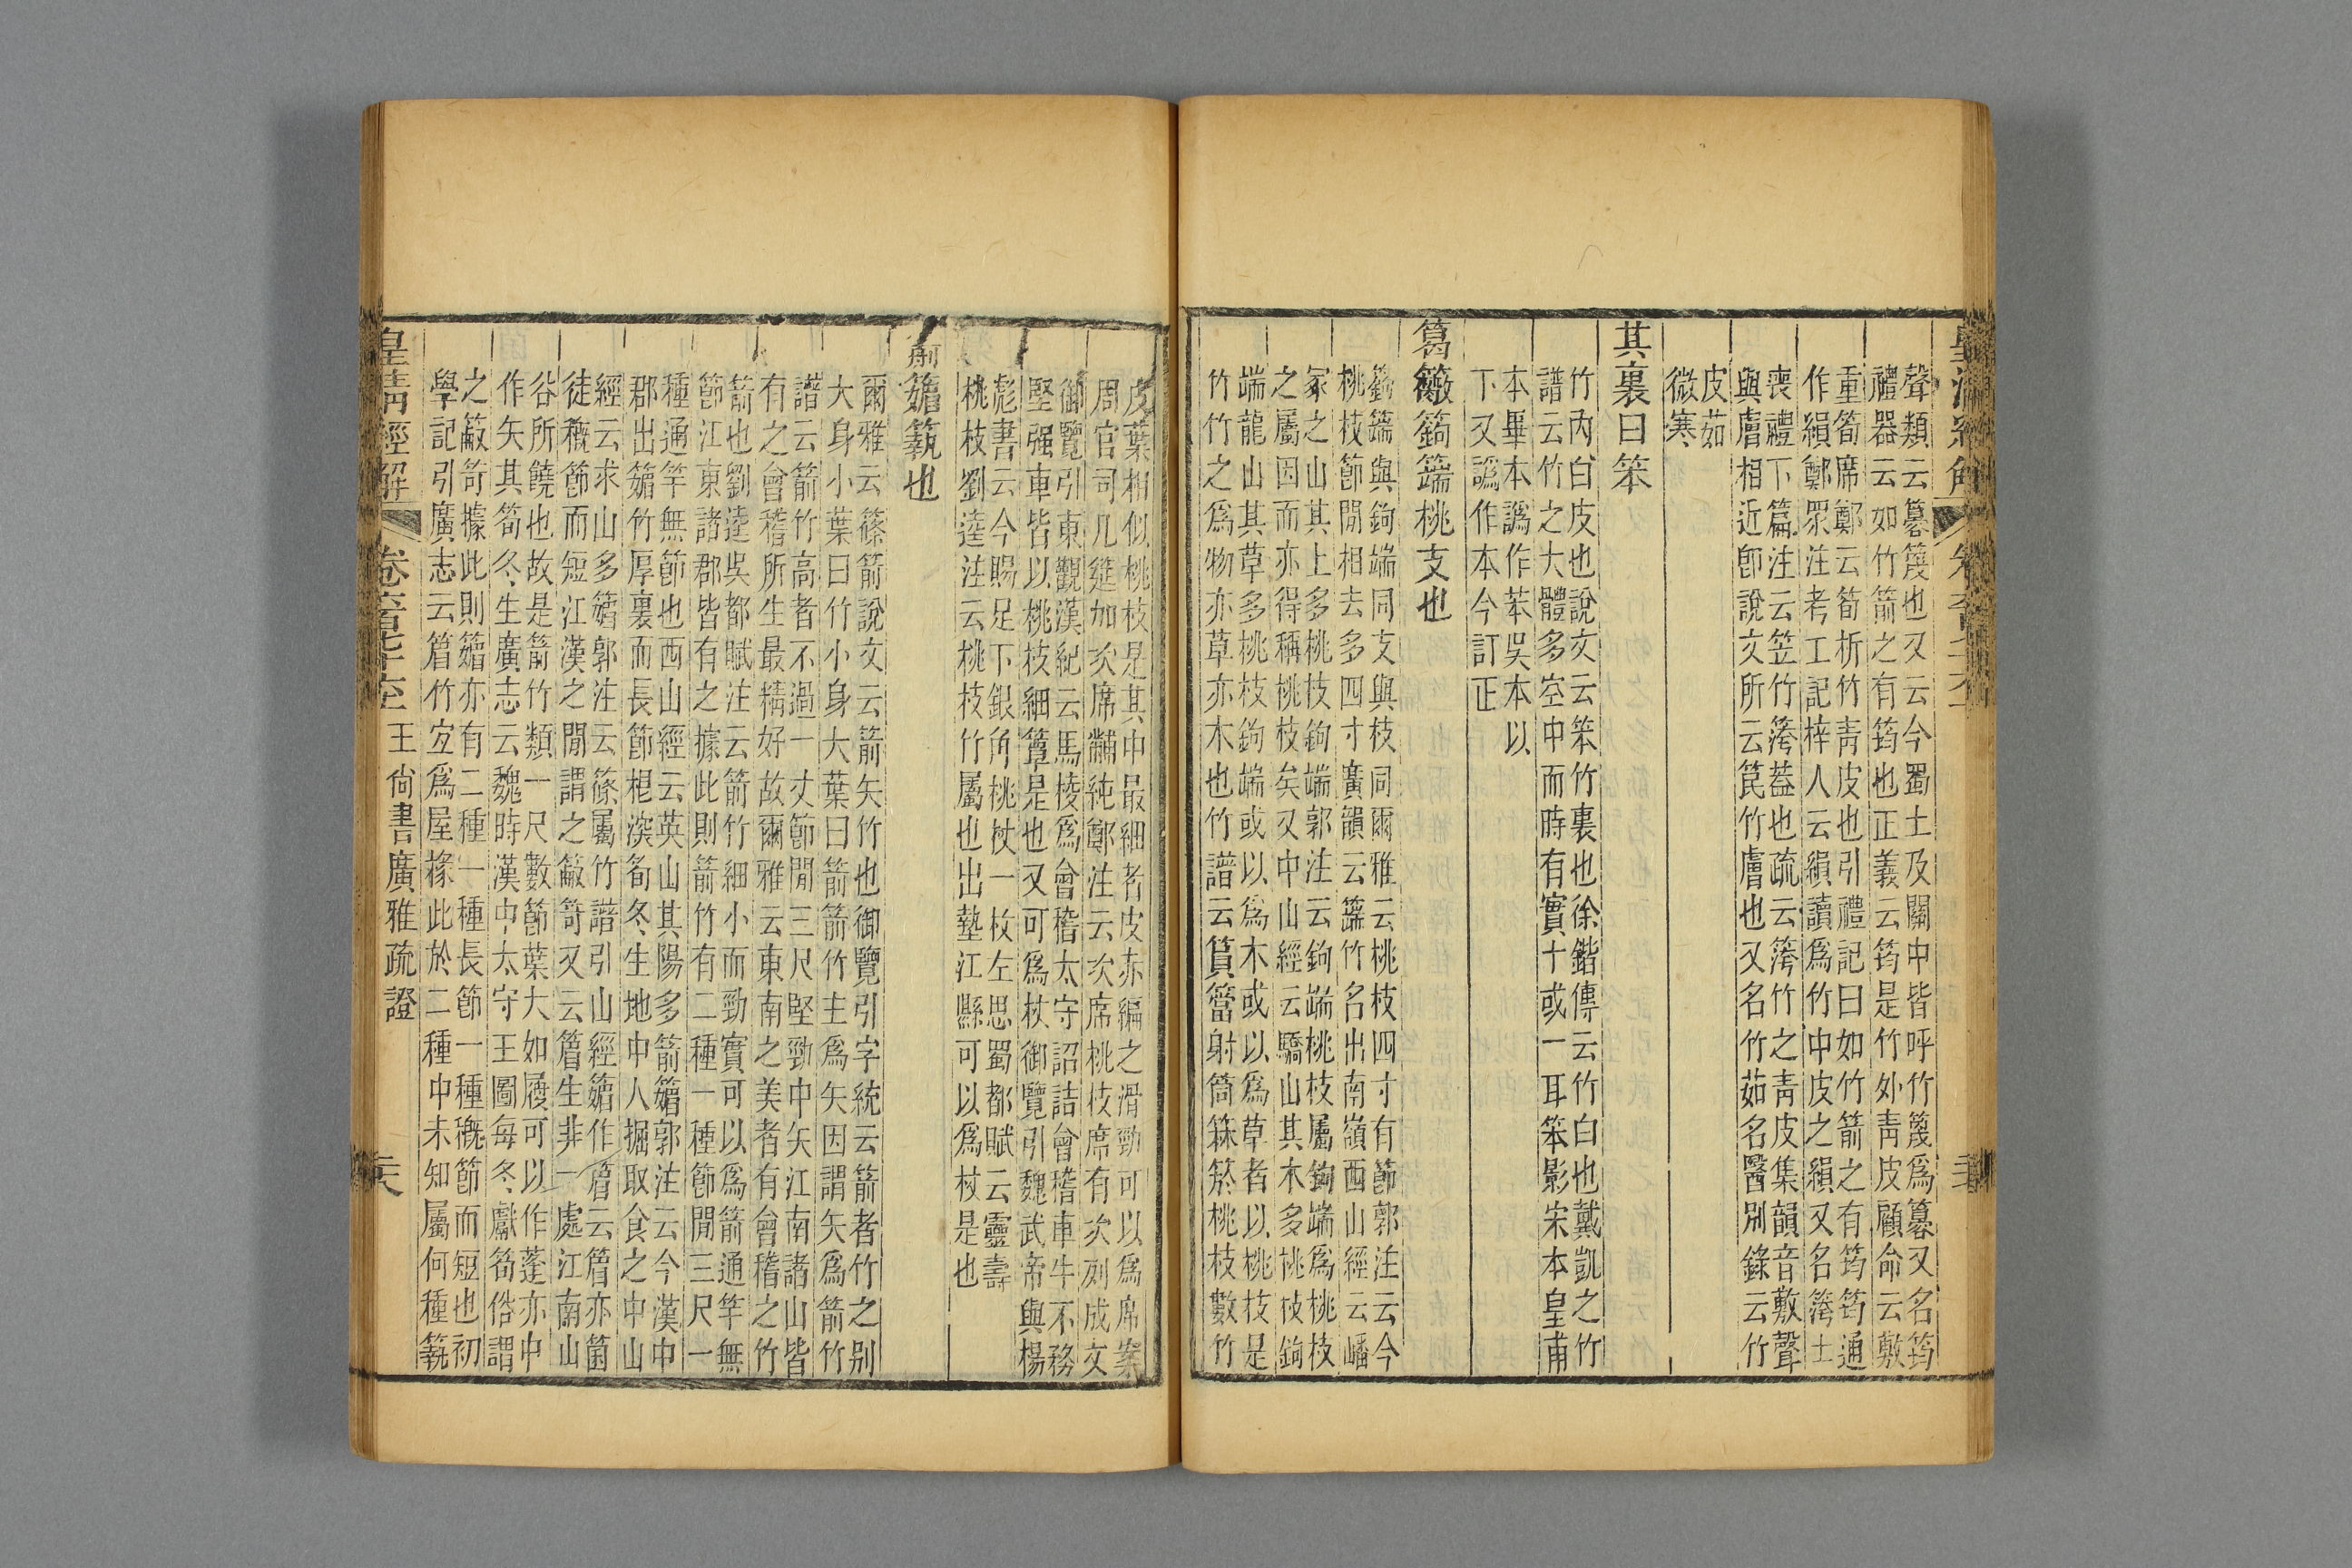 聲類云篾也又云今蜀土及關中皆呼竹篾爲又名筠
禮器云如竹箭之有筠也正義云筠是竹外靑皮顧命云敷
重筍席鄭云筍析竹靑皮也引禮記曰如竹箭之有筠筠通
作縜鄭眾注考工記梓人云縜讀爲竹中皮之縜又名士
喪禮下篇注云笠竹蓋也疏云竹之靑皮集韻音敷聲
與膚相近卽說文所云笢竹膚也又名竹茹名醫別錄云竹
皮茹
微寒
其裏曰笨
竹內白皮也說文云笨竹裏也徐鍇傳云竹白也戴凱之竹
譜云竹之大體多空中而時有實十或一耳笨影宋本皇甫
本畢本譌作苯吳本以
下又譌作本今訂正
桃支也
與鉤端同支與枝同爾雅云桃枝四寸有節郭注云今
桃枝節閒相去多四寸廣韻云竹名出南嶺西山經云嶓
冢之山其上多桃枝鉤端郭注云鉤端桃枝屬鉤端爲桃枝
之屬因而亦得稱桃枝矣又中山經云驕山其木多桃枝鉤
端龍山其草多桃枝鉤端或以爲木或以爲草者以桃枝是
竹竹之爲物亦草亦木也竹譜云篔簹射筒桃枝數竹
皮葉相似桃枝是其中最細者皮赤編之滑勁可以爲席案
周官司几筵加次席黼純鄭注云次席桃枝席有次列成文
御覽引東觀漢紀云馬棱爲會稽太守詔詰會稽車牛不務
堅强車皆以桃枝細簟是也又可爲杖御覽引魏武帝與楊
彪書云今賜足下銀角桃杖一枚左思蜀都賦云靈壽
桃枝劉逵注云桃枝竹屬也出墊江縣可以爲杖是也
也
爾雅云篠箭說文云箭矢竹也御覽引字統云箭者竹之別
大身小葉曰竹小身大葉曰箭箭竹主爲矢因謂矢爲箭竹
譜云箭竹高者不過一丈節閒三尺堅勁中矢江南諸山皆
有之會稽所生最精好故爾雅云東南之美者有會稽之竹
箭也劉逵吳都賦注云箭竹細小而勁實可以爲箭通竿無
節江東諸郡皆有之據此則箭竹有二種一種節閒三尺一
種通竿無節也西山經云英山其陽多箭䉋郭注云今漢中
郡出䉋竹厚裏而長節根深筍冬生地中人掘取食之中山
經云求山多䉋郭注云篠屬竹譜引山經䉋作䈞云䈞亦箘
徒穊節而短江漢之閒謂之䈼又云䈞生非一處江南山
谷所饒也故是箭竹類一尺數節葉大如履可以作蓬亦中
作矢其筍冬生廣志云魏時漢中太守王圖每冬獻筍俗謂
之據此則䉋亦有二種一種長節一種穊節而短也初
學記引廣志云䈞竹宜爲屋椽此於二種中未知屬何種
皇淸經解
王尙書廣雅疏證